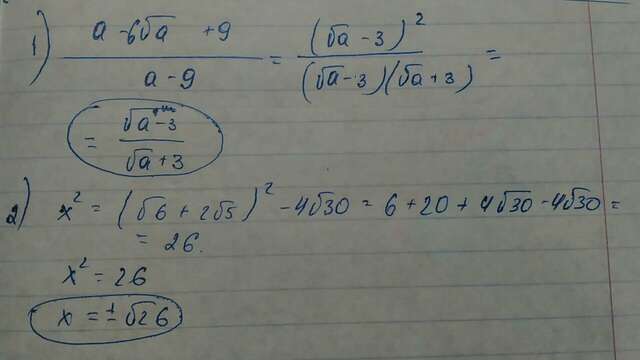 1) (a - 6√a + 9)/(a - 9) = (√a - 3)²/((√a - 3)(√a + 3)) =
= (√a - 3)/(√a + 3)
2) x² = (√6 + 2√5)² - 4√30 = 6 + 20 + 4√30 - 4√30 =
= 26.
x² = 26
x = ±√26